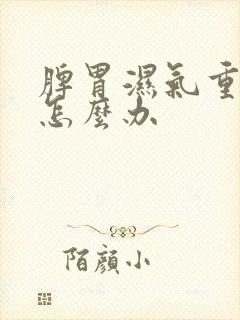 脾胃濕氣重
怎麼办
陌顔小